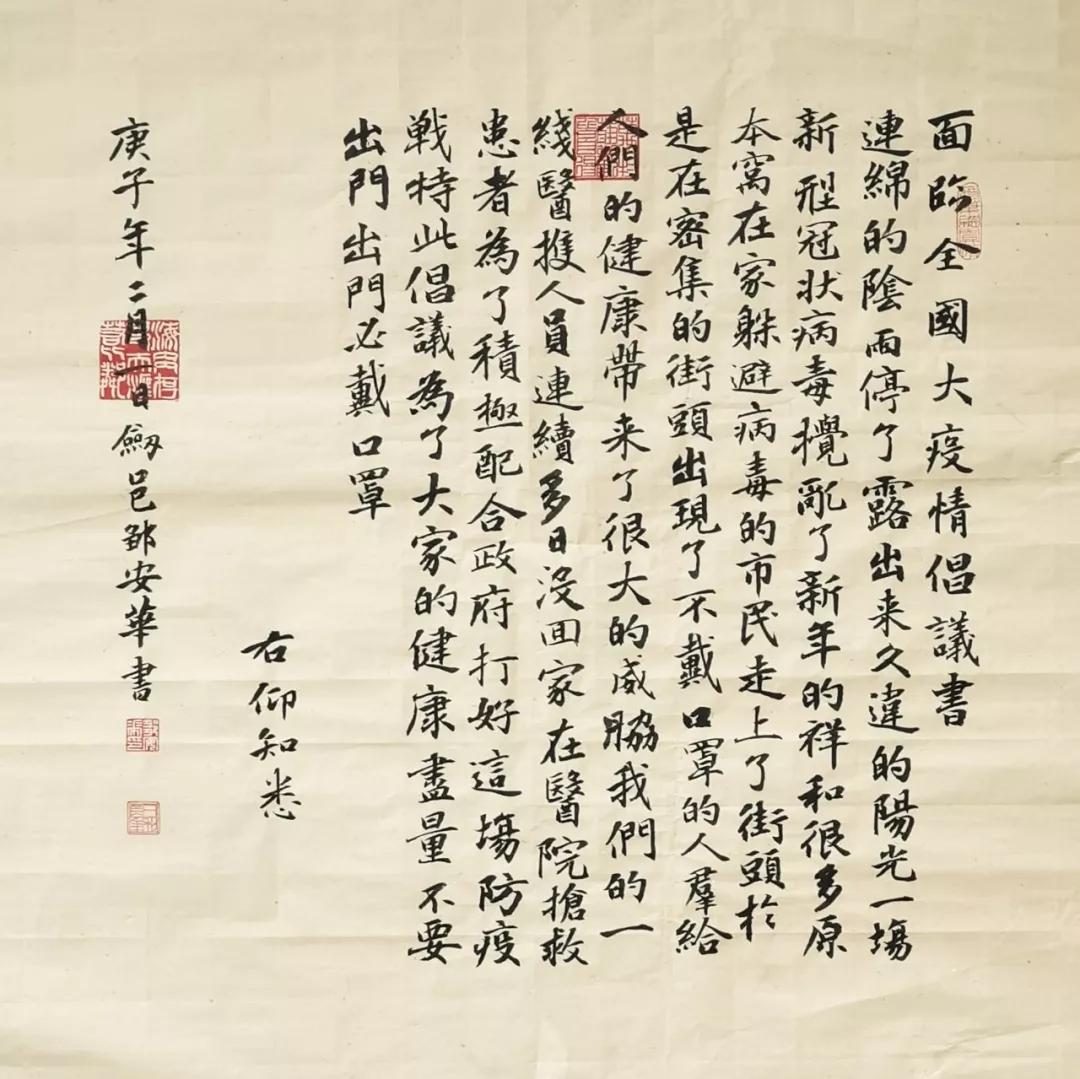 面臨全國大疫情倡議書
連綿的陰雨停了露出来久違的陽光一場
新型冠状病毒攪亂了新年的祥和很多原
本窩在家躲避病毒的市民走上了街頭於
是在密集的街頭出現了不戴口罩的人羣給
人們的健康帶来了很大的威脇我們的一
綫醫護人員連續多日没回家在醫院搶救
患者為了積極配合政府打好這場防疫
戦特此倡議為了大家的健康盡量不要
出門出門必戴口罩
右仰知悉
庚子年二月一日劔邑邹安華書